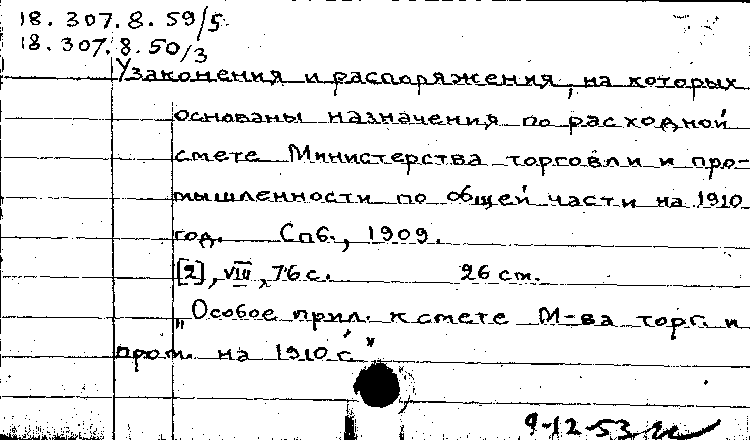 18. 307. 8. 59/5.
18. 307. 8. 50/3
Узаконения и распоряжения, на которых
основаны назначения по расходной
смете Министерства торговли и про-
мышленности по общей части на 1910
год. Спб., 1909.
[2], VIII, 76 с. 26 ст.
„Особое прил. к смете М-ва торг. и
пром. на 1910 г."
9-12-53